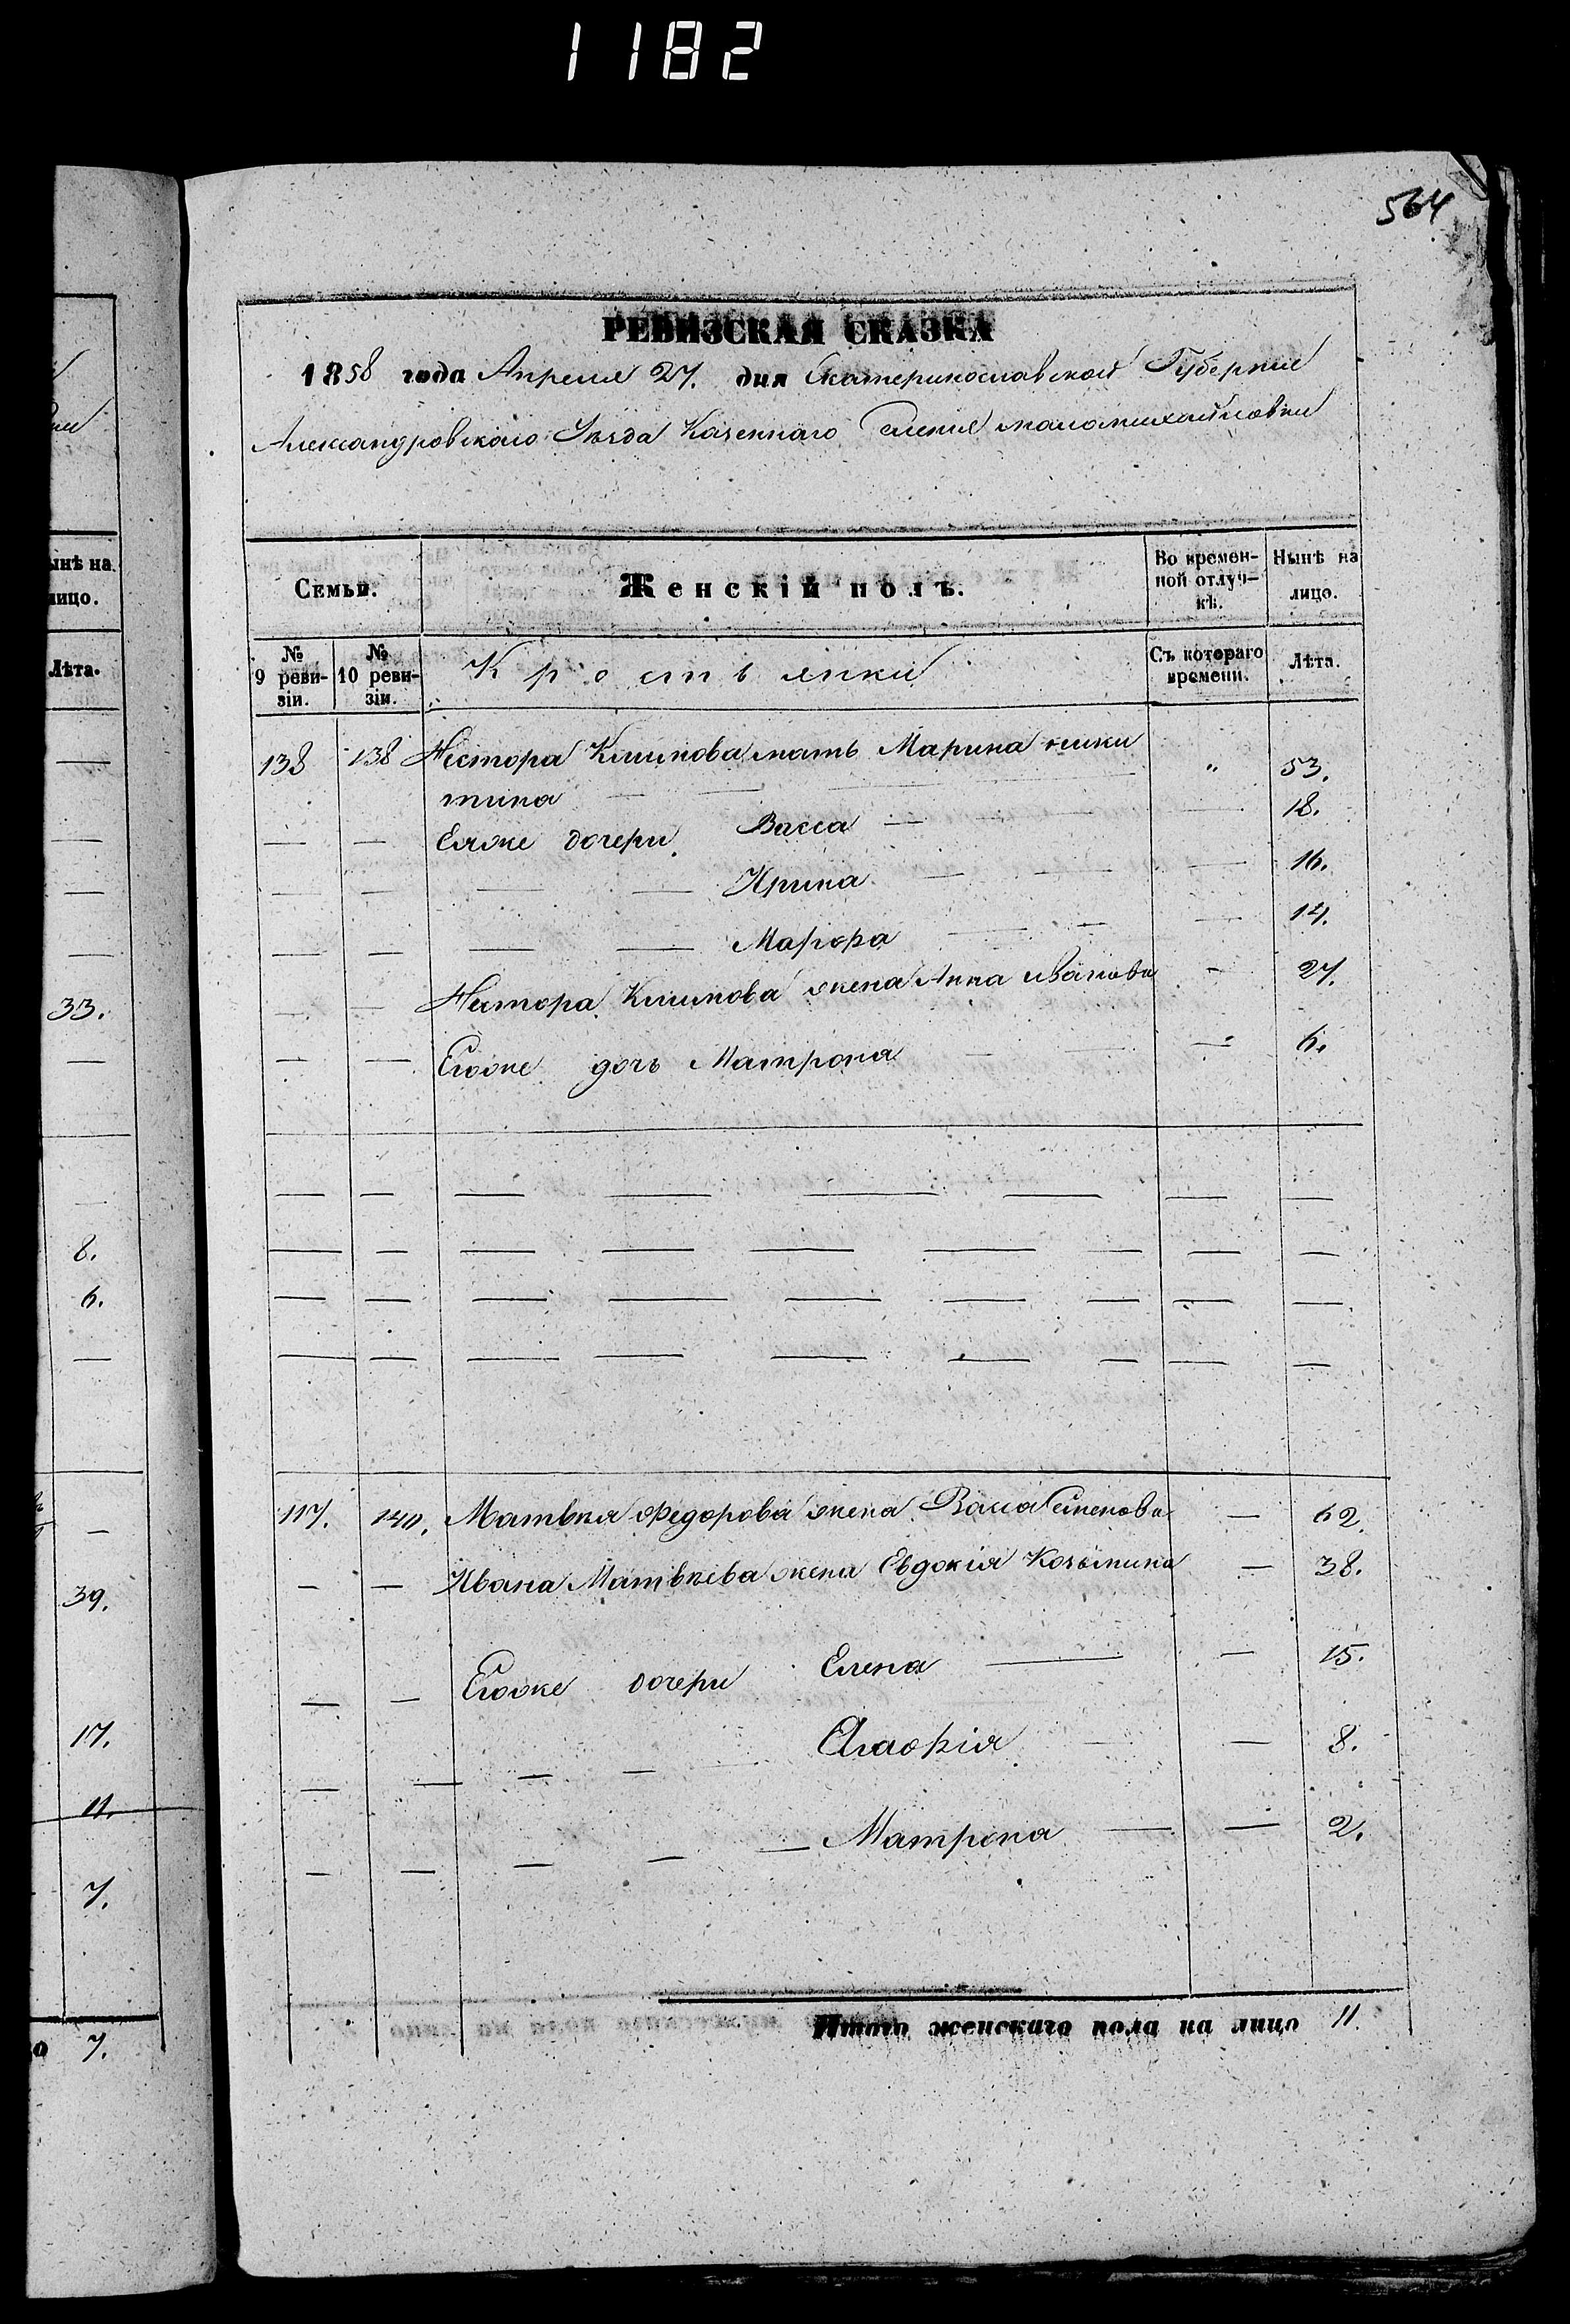 1182
564
РЕВИЗСКАЯ СКАЗКА
1858 года Апреля 27. дня Екатеринославской Губернии
Александровскаго Уезда Казеннаго Селения маломихайловки
ынѣ на
лицо.
Лѣта.
33.
8.
6.
39.
17.
11.
7.
о 7.
Семьи. Женскій полъ. Во времен-ной отлуч-кѣ. Нынѣ на лицо.
№ 9 реви-зіи. № 10 реви-зіи. Крестьянки Съ котораго времени. Лѣта.
138 138 Нестора Климова мать Марина ники
тина — — — " 53.
— — Еяже дочери Васса — — 18.
— — — — Ирина — — — 16.
— — — — Марѳа — — — 14.
— — Нестора Климова жена Анна иванова - 27.
— — Егоже дочь Матрона — — — 6.
— — — — — — — —
— — — — — — — — —
— — — — — — — — —
— — — — — — — — —
117. 140. Матвея Федорова жена Васса Семенова — 62.
— — Ивана Матвѣева жена Евдокія Козьмина — 38.
— — Егоже дочери Елена — — 15.
— — — — Агаѳія — — 8.
— — — — — Матрона — — 2.
Итого женскаго пола на лицо 11.